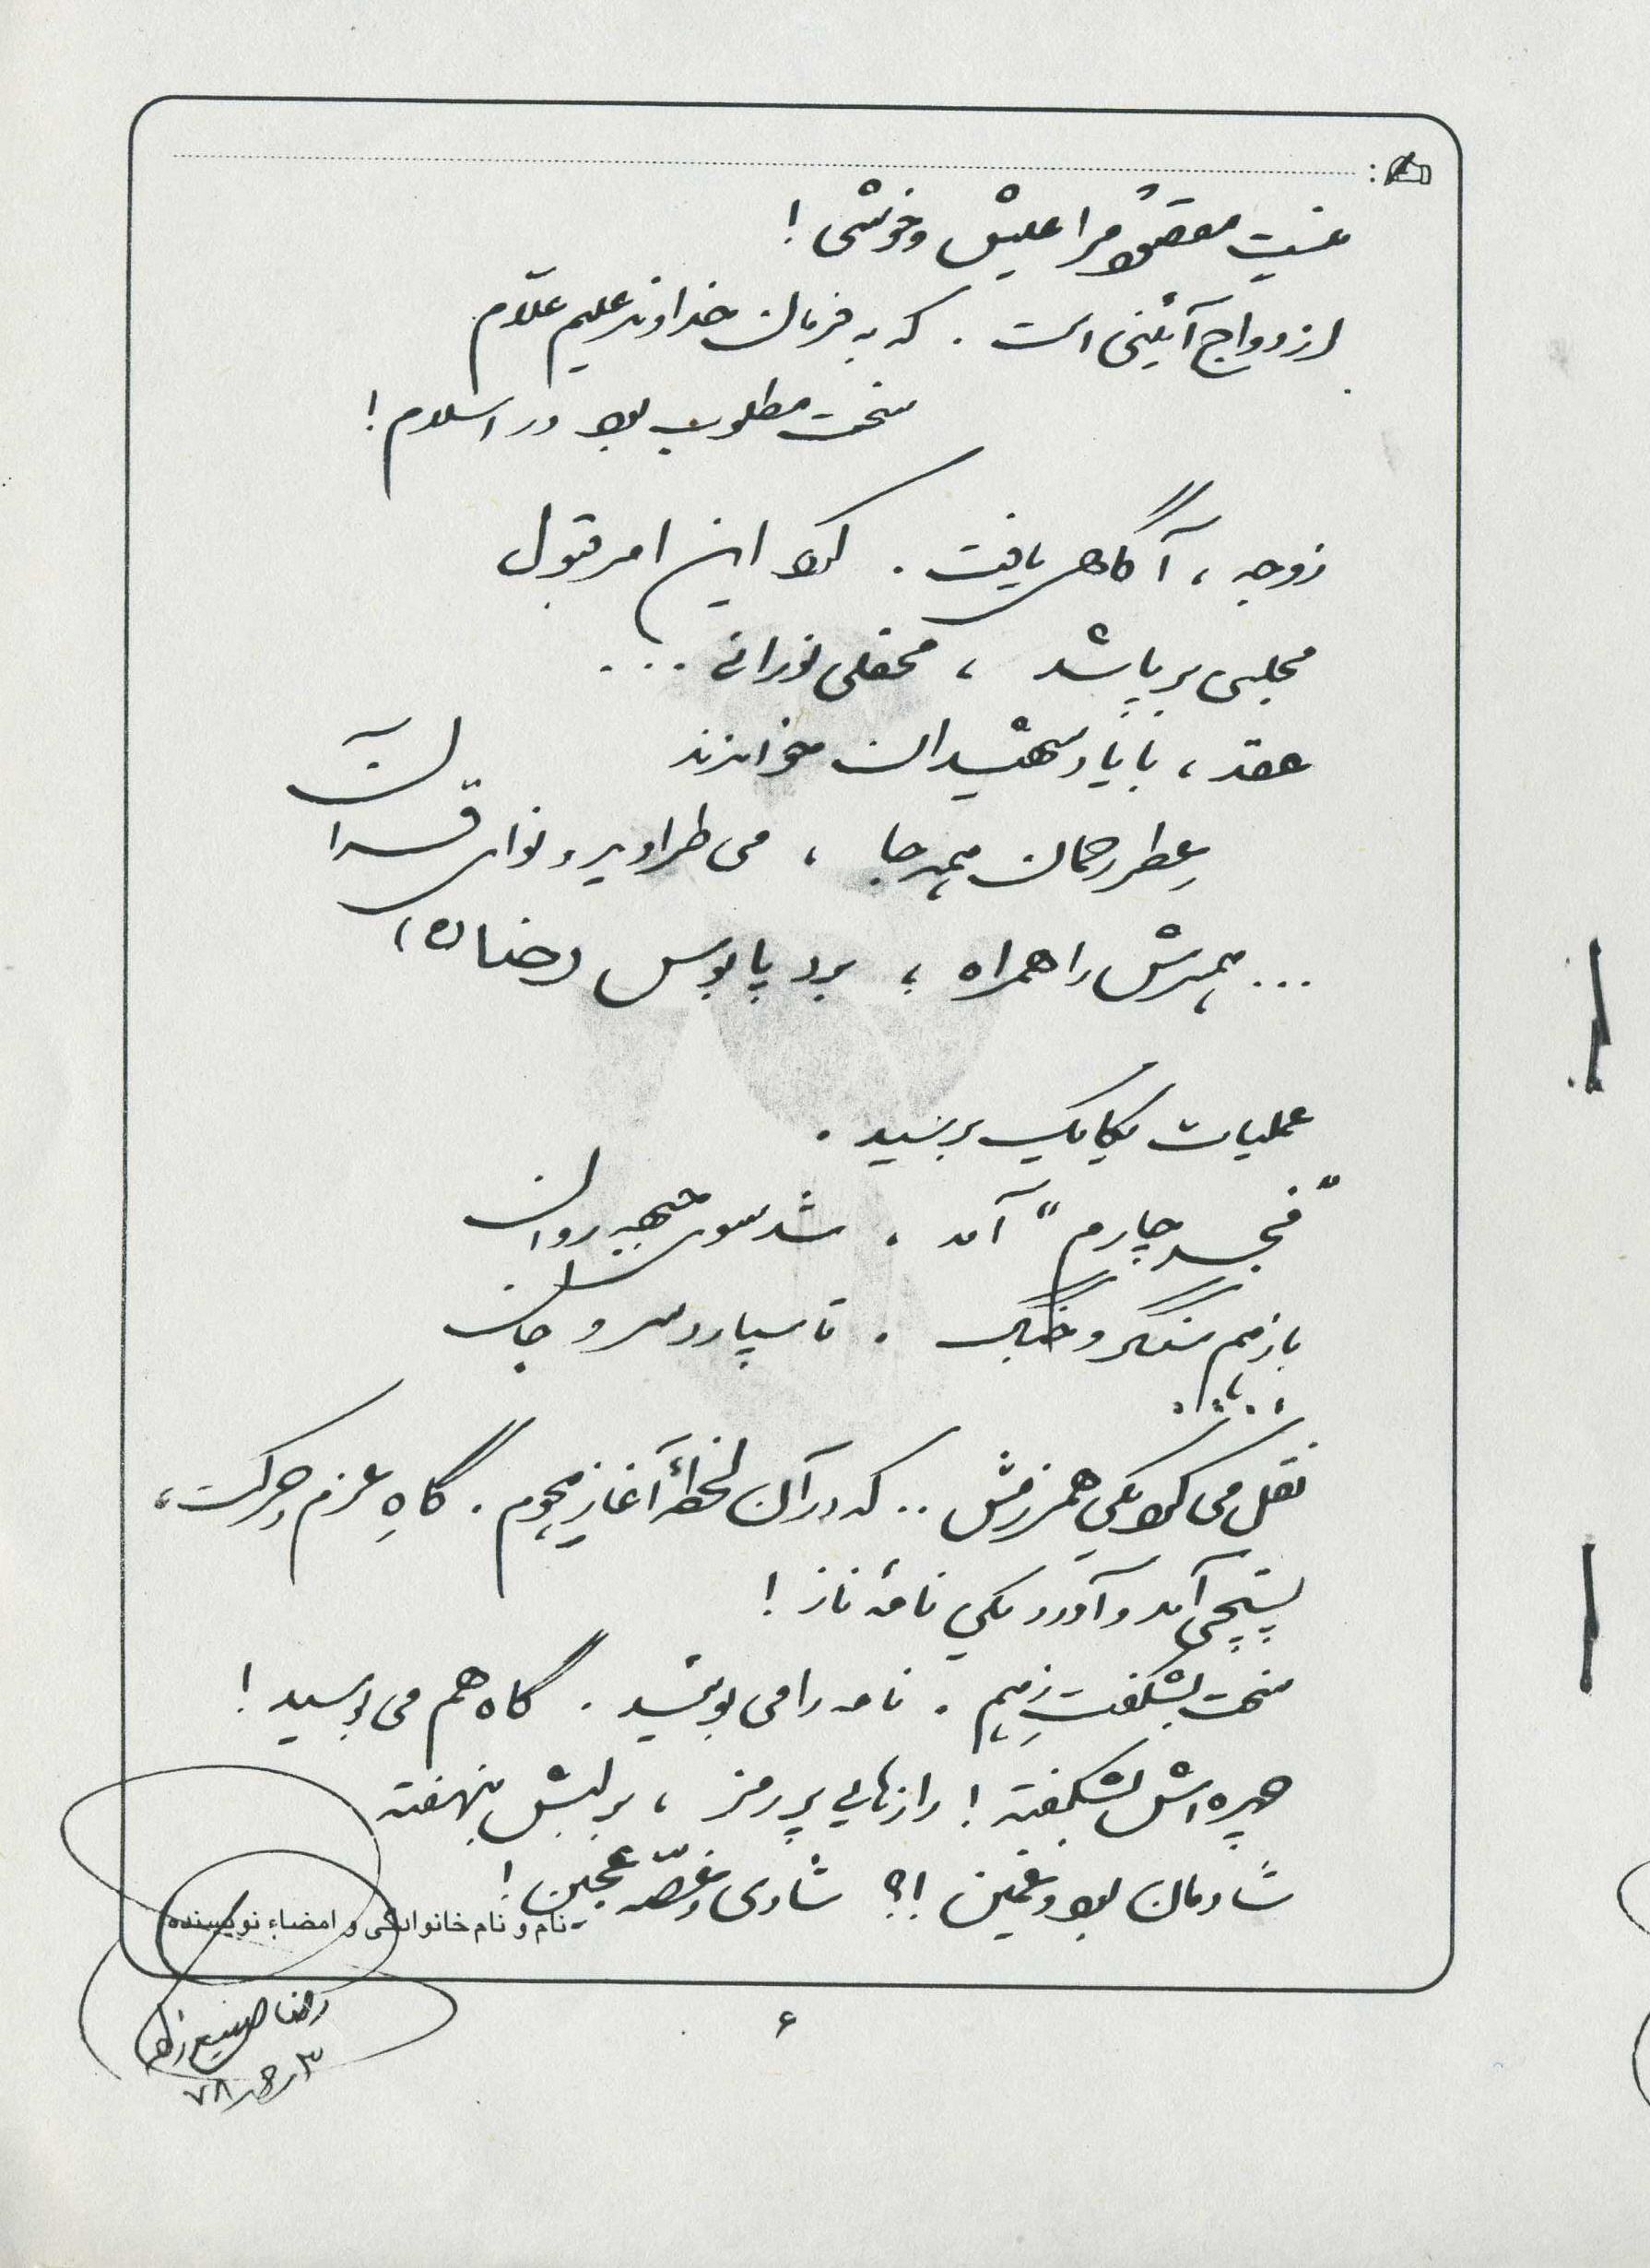 نیست مقصود مرا عیش و خوشی!
ازدواج آئینی است. که به فرمان خداوند علیم علّام
سخت مطلوب بود در اسلام!
زوجه، آگاهی یافت. کرد این امر قبول
مجلسی برپا شد، محفلی نورانی...
عقد، با یاد شهیدان خواندند
عِطر رحمان همه جا، می طراوید و نوای قرآن
... همسرش را همراه، برد پابوس رضا(ع)،
عملیات یکایک برسید.
"فجر چارم" آمد، شد سوی جبهه روان
باز هم سنگر و جنگ. تا سپارد سر و جان
....
نقل می کرد یکی همرزمش.. که در آن لحظهٔ آغاز هجوم. گاهِ عزم و حرکت،
پستچی آمد و آورد یکی نامهٔ ناز!
سخت بشکفت زِ هم. نامه را می بوئید. گاه هم می بوسید!
چهره اش بشکفته! رازهایی پر رمز، بر لبش بنهفته
شادمان بود و غمین!؟ شادی و غصّه عجین!
-نام و نام خانوادگی و امضاء نویسنده:
رضا
۷۸
۶